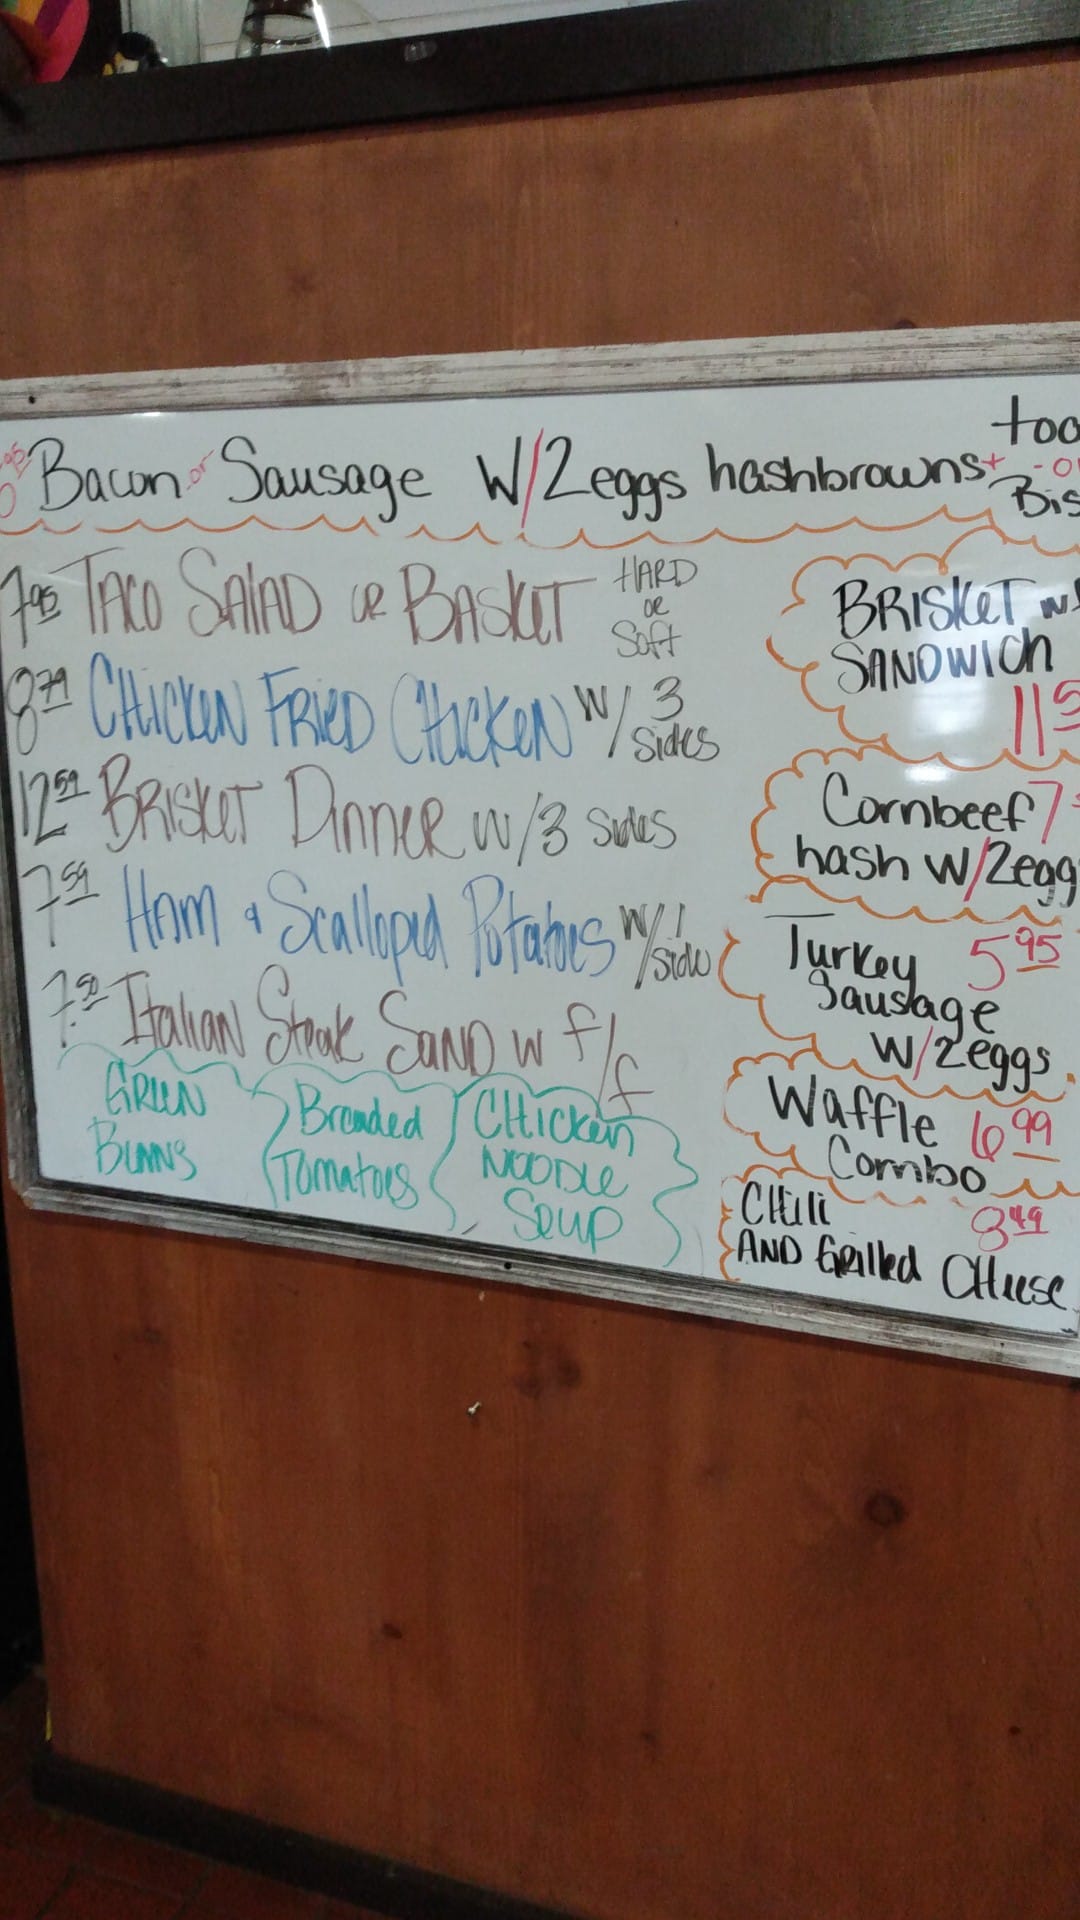 Bacon or Sausage W/2eggs hashbrowns+
7.95 TACO SALAD OR BASKET HARD or Soft
8.79 CHICKEN FRIED CHICKEN W/ 3 Sides
12.59 BRISKET DINNER W/3 sides
7.59 HAM & Scalloped Potatoes W/1 side
7.50 Italian Steak SAND W f/f
GREEN
BEANS
Breaded
Tomatoes
CHICKEN
NOODLE
Soup
BRISKET
SANDWICH
Cornbeef
hash W/2egg
Turkey 5.95
Sausage
W/2eggs
Waffle 6.99
Combo
CHili 8.49
AND Grilled CHeese